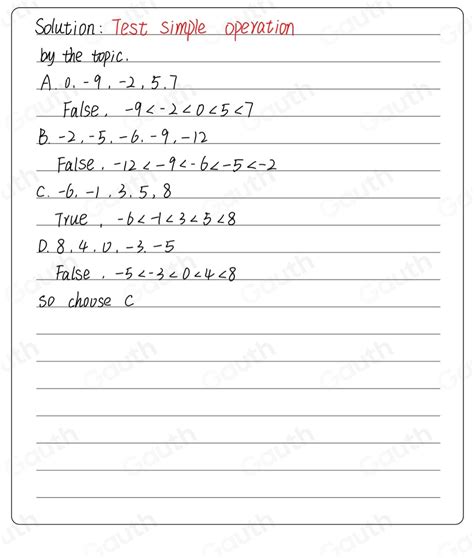 Solution: Test simple operation
by the topic.
A. 0, -9, -2, 5.7
False, -9<-2<0<5<7
B. -2, -5, -6, -9, -12
False, -12<-9<-6<-5<-2
C. -6, -1, 3, 5, 8
True, -6<-1<3<5<8
D. 8, 4, 0, -3, -5
False, -5<-3<0<4<8
so choose C